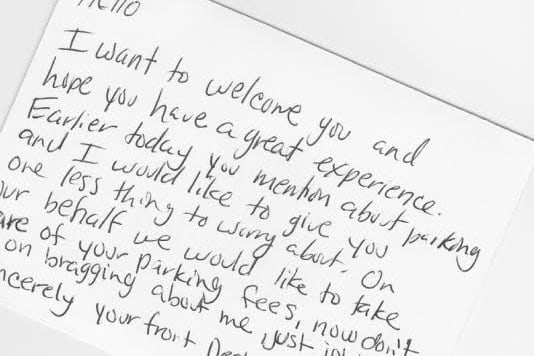 Hello
I want to welcome you and
hope you have a great experience.
Earlier today you mention about parking
and I would like to give you
one less thing to worry about. On
our behalf we would like to take
care of your parking fees, now don't
on bragging about me just
sincerely your front Desk